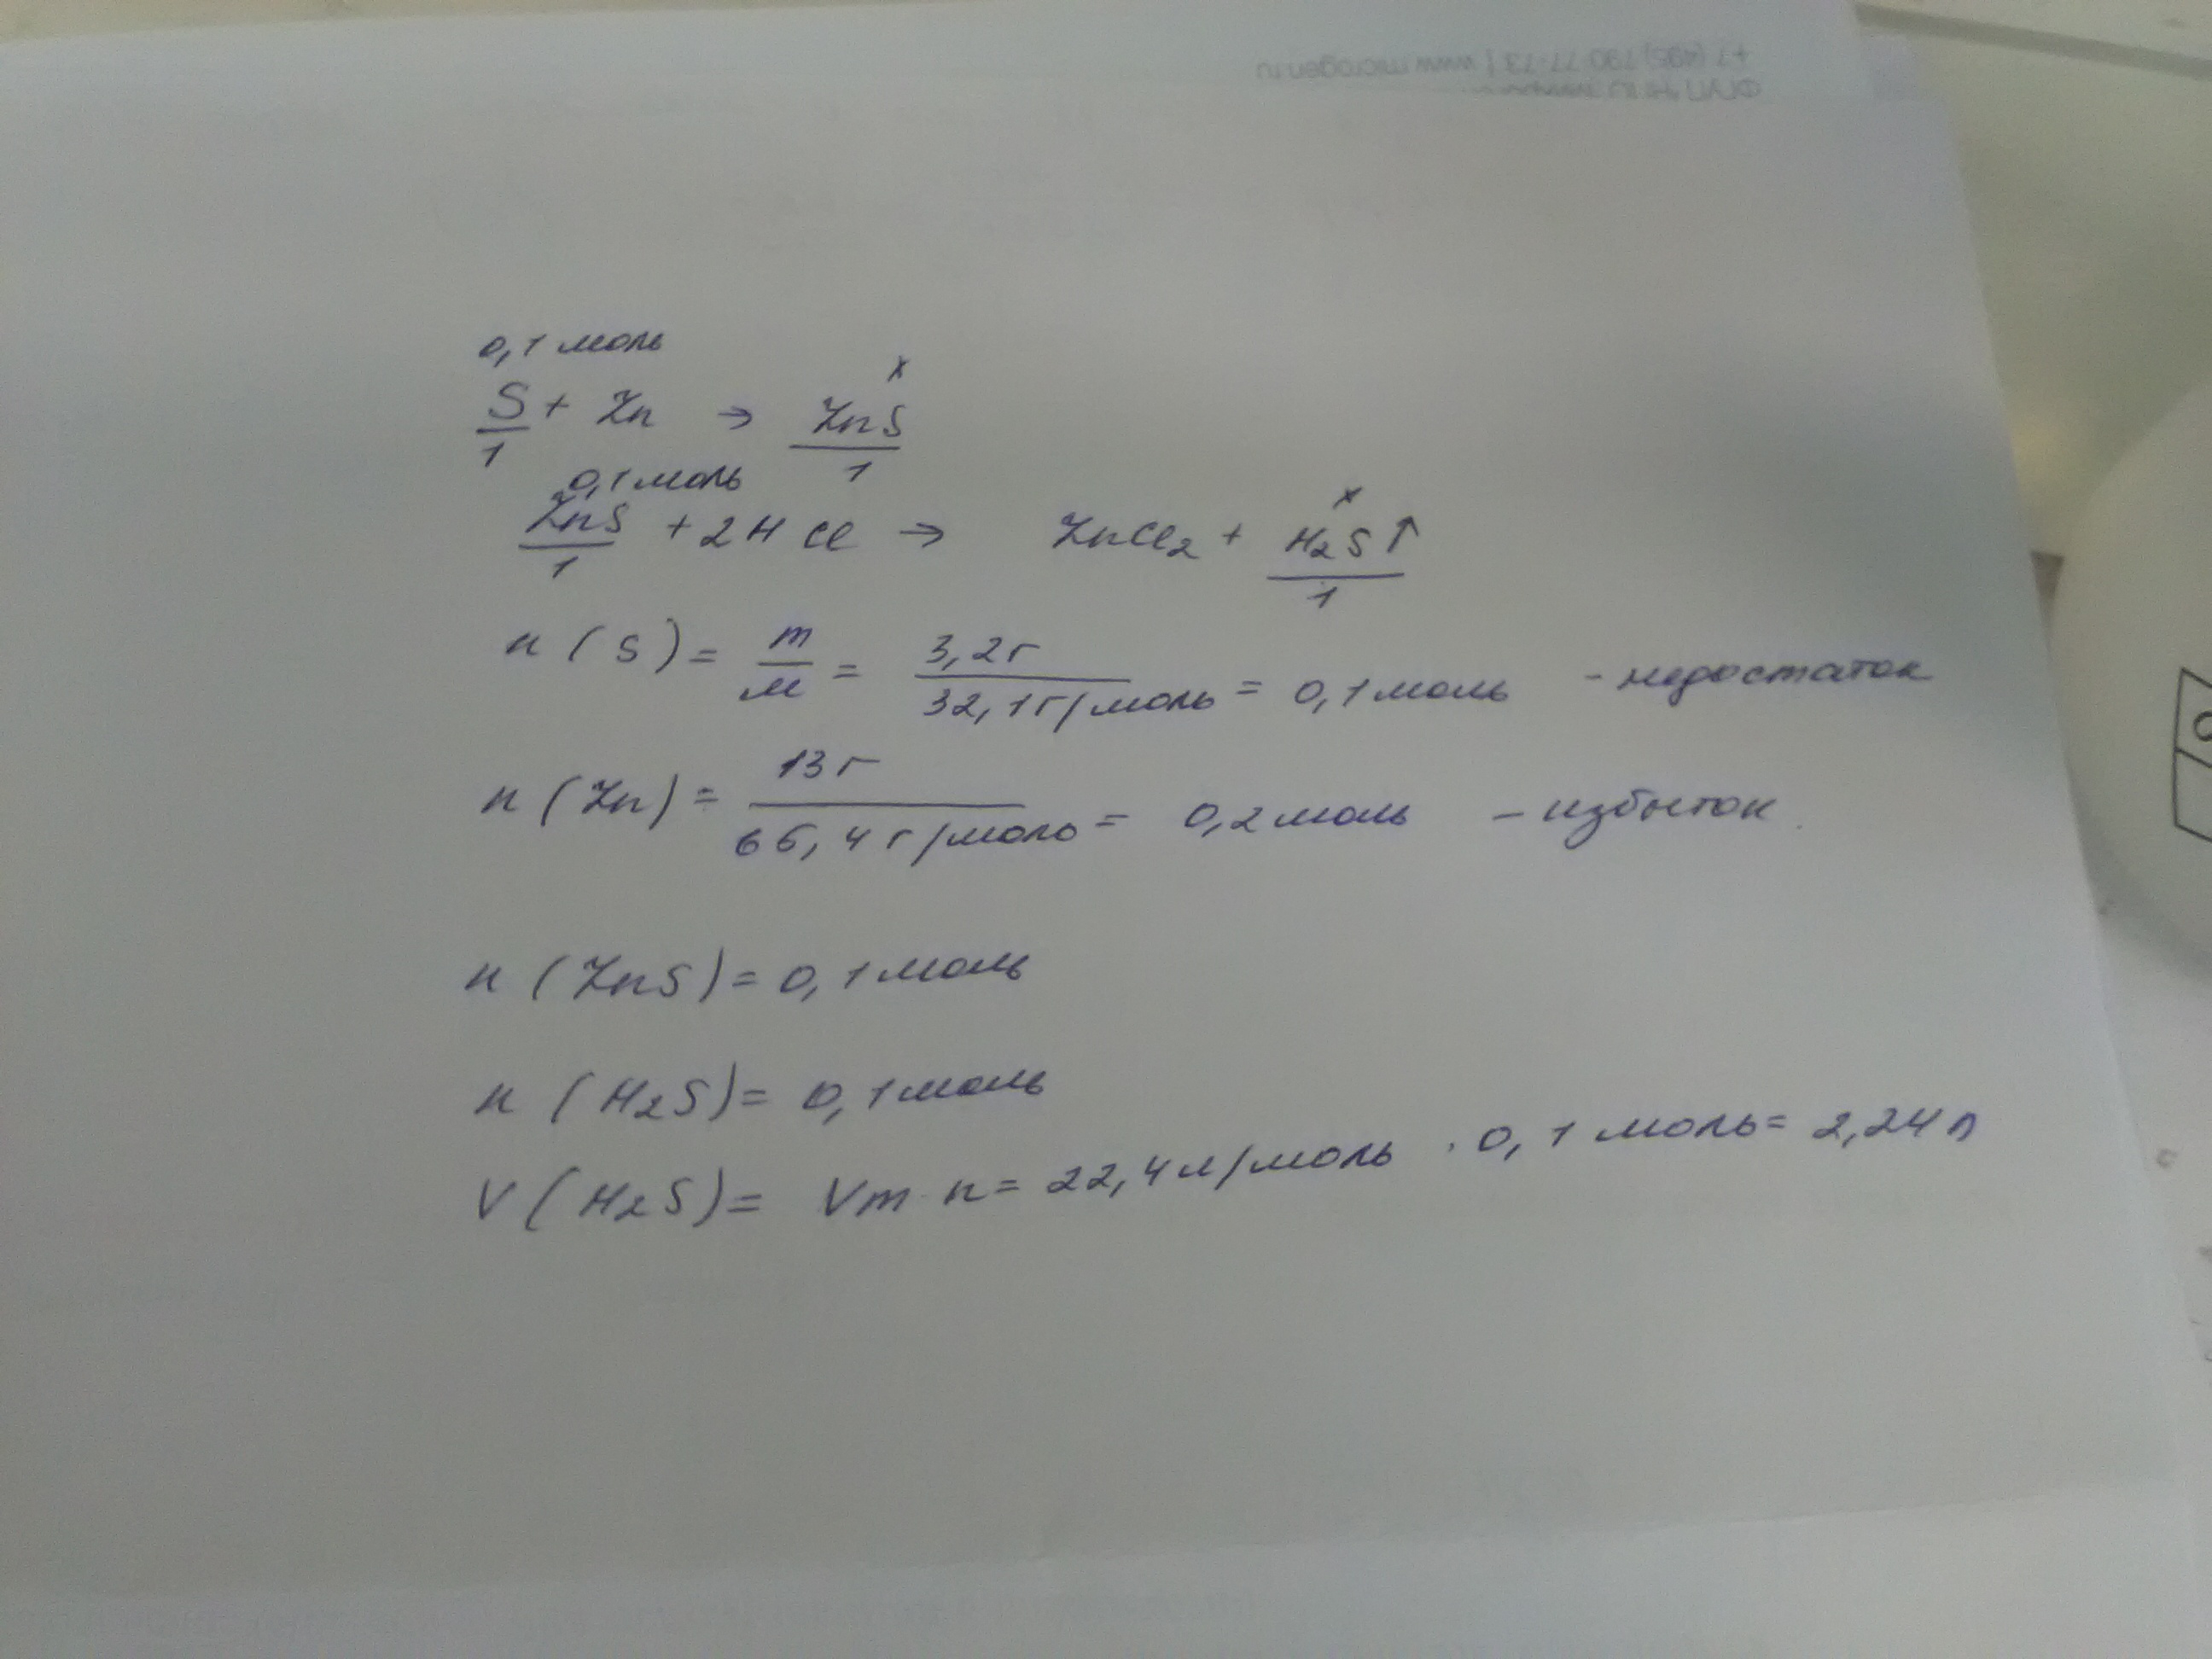 +7 (495) 790-77-73 | www.microgen.ru
ФГУП «НПО
0,1 моль
x
S + Zn → ZnS
1 1
0,1 моль
x
ZnS + 2HCl → ZnCl₂ + H₂S↑
1 1
n (S) = m/M = 3,2г / 32,1г/моль = 0,1 моль - недостаток
n (Zn) = 13г / 65,4г/моль = 0,2 моль - избыток.
n (ZnS) = 0,1 моль
n (H₂S) = 0,1 моль
V (H₂S) = Vm · n = 22,4 л/моль · 0,1 моль = 2,24 л